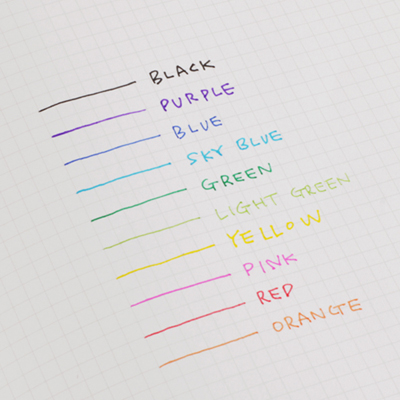 BLACK
PURPLE
BLUE
SKY BLUE
GREEN
LIGHT GREEN
YELLOW
PINK
RED
ORANGE